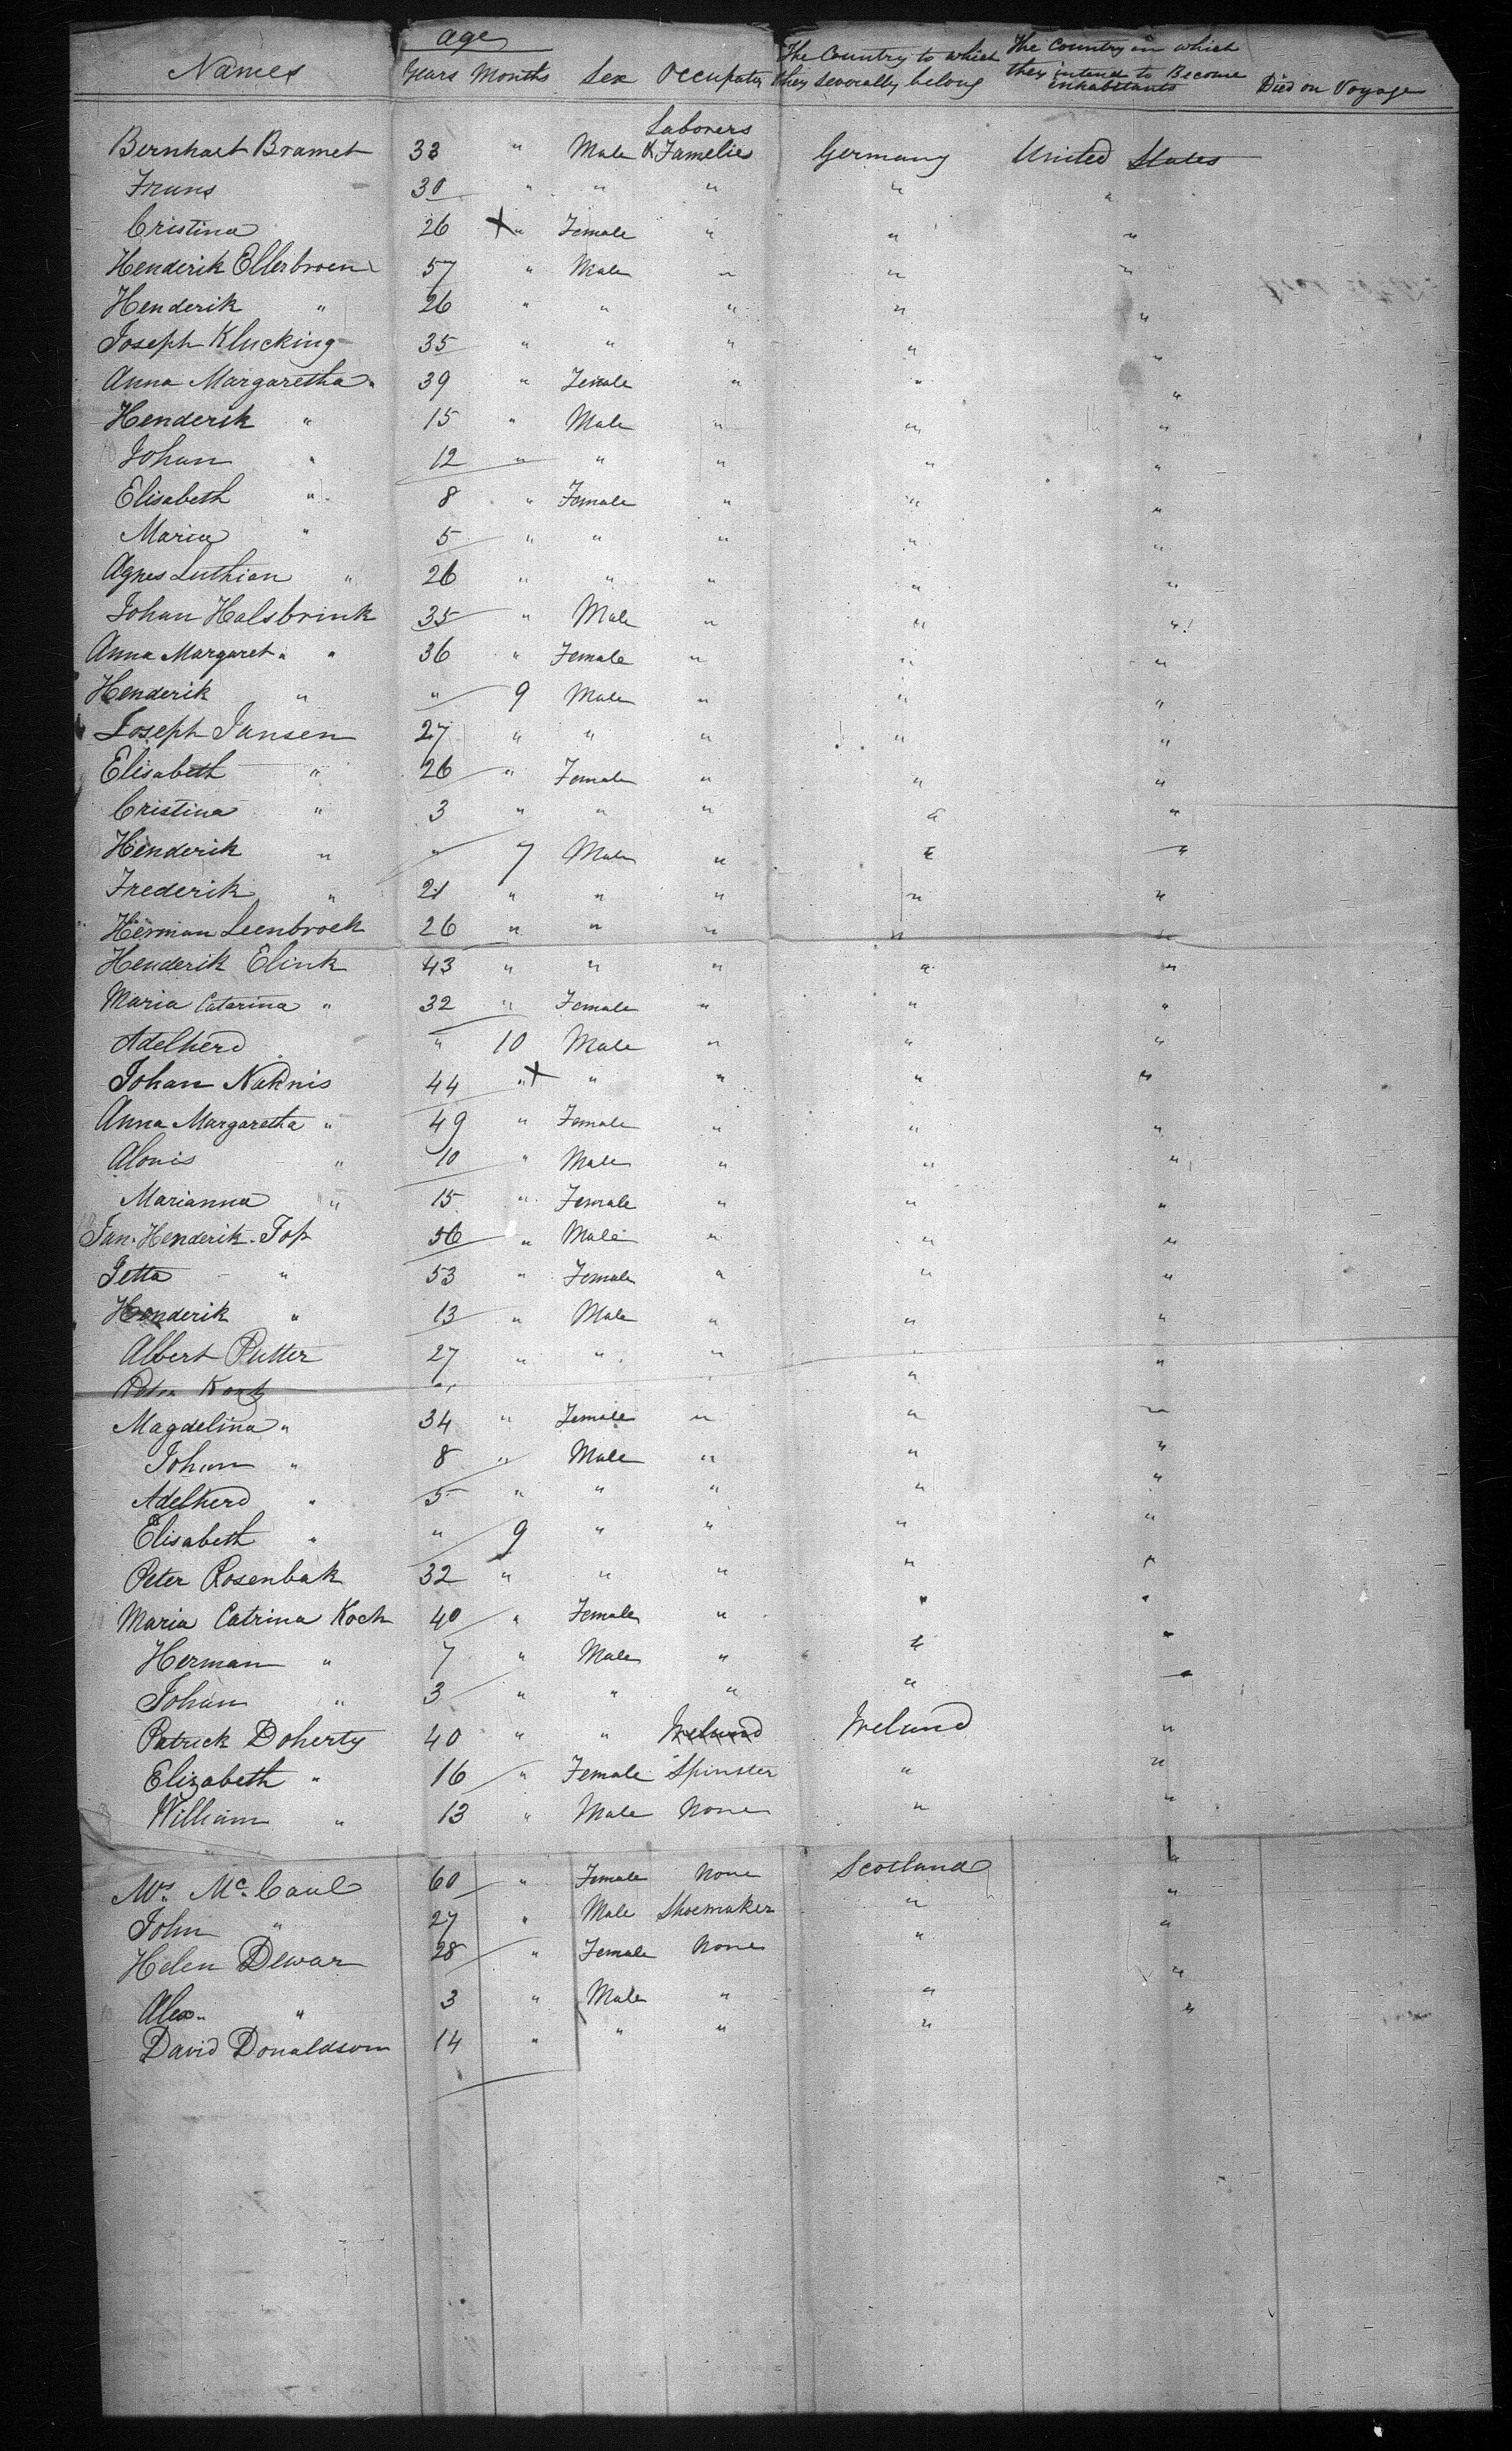 Names age Years Months Sex Occupation The Country to which they severally belong The Country in which they intend to Become inhabitants Died on Voyage
Laborers
Bernhart Bramet 33 " Male & Famelies Germany United States
Frans 30 " " " " "
Cristina 26 " Female " " "
Henderik Ellerbroen 57 " Male " " "
Henderik " 26 " " " " "
Joseph Klucking 35 " " " " "
Anna Margaretha " 39 " Female " " "
Henderik " 15 " Male " " "
Johan " 12 " " " " "
Elisabeth " 8 " Female " " "
Maria " 5 " " " " "
Agnes Luthian " 26 " " " " "
Johan Halsbrink 35 " Male " " "
Anna Margaret " " 36 " Female " " "
Henderik " " 9 Male " " "
Joseph Jansen 27 " " " " "
Elisabeth " 26 " Female " " "
Cristina " 3 " " " " "
Henderik " " 7 Male " " "
Frederik " 21 " " " " "
Herman Leenbroek 26 " " " " "
Henderik Elink 43 " " " " "
Maria Catarina " 32 " Female " " "
Adelherd " 10 Male " " "
Johan Naknis 44 " " " " "
Anna Margaretha " 49 " Female " " "
Alouis " 10 " Male " " "
Marianna " 15 " Female " " "
Jan Henderik Top 56 " Male " " "
Jetta " 53 " Female " " "
Henderik " 13 " Male " " "
Albert Putter 27 " " " " "
Peter Kork " "
Magdelina " 34 " Female " " "
Johan " 8 " Male " " "
Adelherd " 5 " " " " "
Elisabeth " " 9 " " " "
Peter Rosenbak 32 " " " " "
Maria Catrina Koch 40 " Female " " "
Herman " 7 " Male " " "
Johan " 3 " " " " "
Patrick Doherty 40 " " Ireland Ireland "
Elizabeth " 16 " Female Spinster " "
William " 13 " Male None " "
Mrs. Mc. Caul 60 " Female None Scotland "
John " 27 " Male Shoemaker " "
Helen Dewar 28 " Female None " "
Alex. " 3 " Male " " "
David Donaldson 14 " " " " "